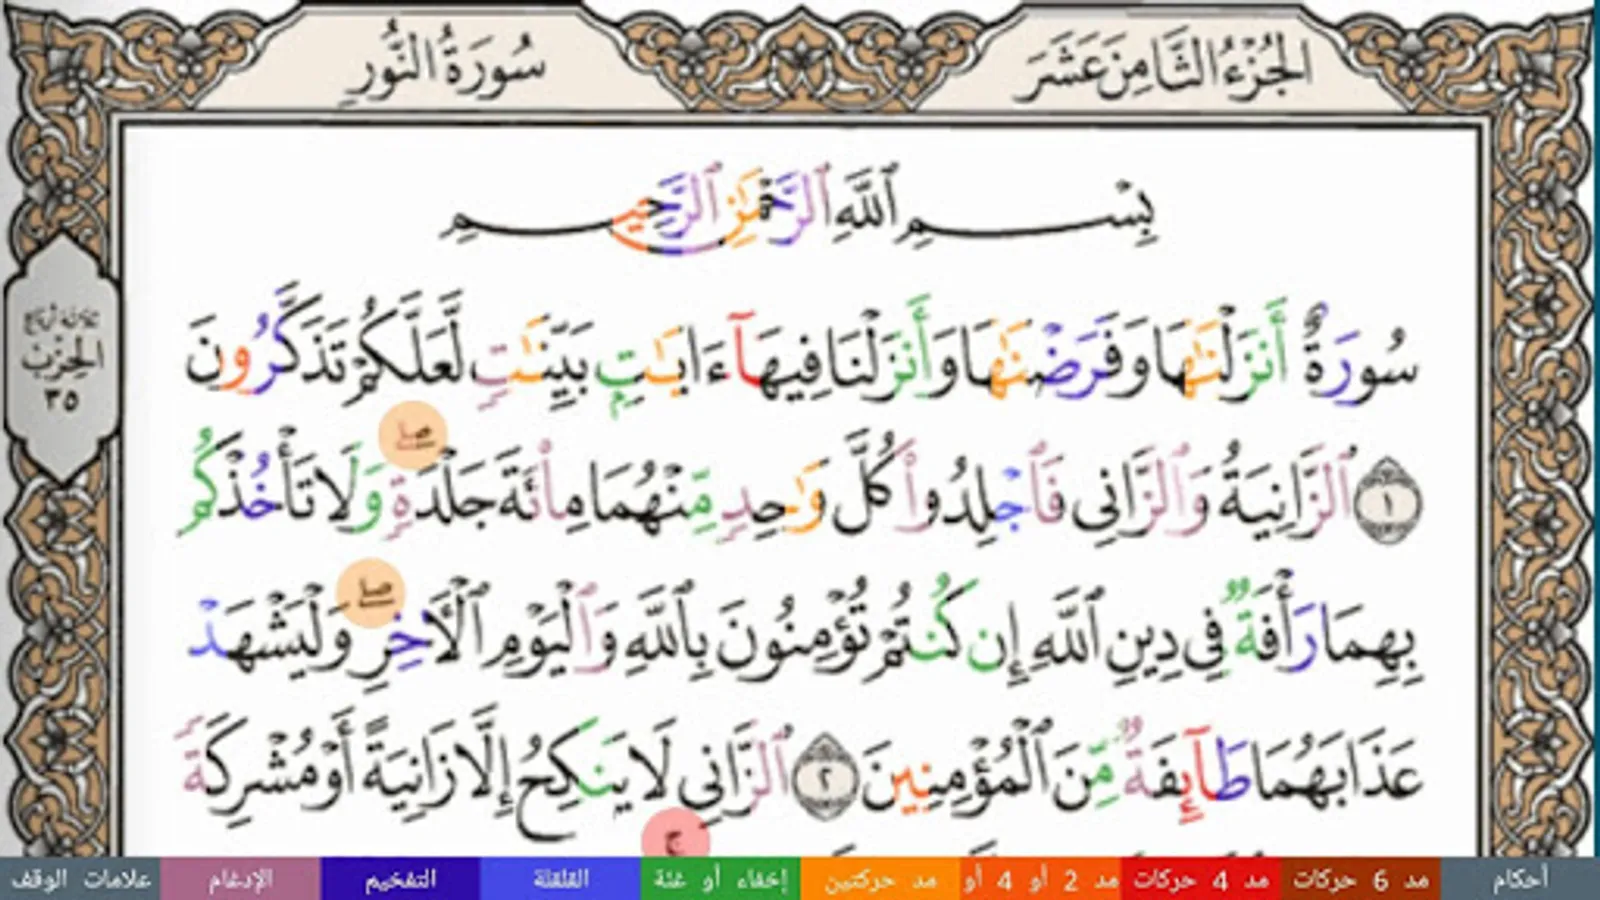 الجُزْءُ الثَّامِنَ عَشَرَ
سُورَةُ النُّورِ
بِسْمِ ٱللَّهِ ٱلرَّحْمَٰنِ ٱلرَّحِيمِ
سُورَةٌ أَنزَلْنَٰهَا وَفَرَضْنَٰهَا وَأَنزَلْنَا فِيهَآ ءَايَٰتٍۭ بَيِّنَٰتٍ لَّعَلَّكُمْ تَذَكَّرُونَ
١ ٱلزَّانِيَةُ وَٱلزَّانِى فَٱجْلِدُوا۟ كُلَّ وَٰحِدٍ مِّنْهُمَا مِا۟ئَةَ جَلْدَةٍۖ وَلَا تَأْخُذْكُم
بِهِمَا رَأْفَةٌ فِى دِينِ ٱللَّهِ إِن كُنتُمْ تُؤْمِنُونَ بِٱللَّهِ وَٱلْيَوْمِ ٱلْأَخِرِۖ وَلْيَشْهَدْ
عَذَابَهُمَا طَآئِفَةٌ مِّنَ ٱلْمُؤْمِنِينَ ٢ ٱلزَّانِى لَا يَنكِحُ إِلَّا زَانِيَةً أَوْ مُشْرِكَةً
ثلاثة أرباع
الحِزْب
٣٥
أحكام
مد 6 حركات
مد 4 حركات
مد 2 أو 4 أو
مد حركتين
إخفاء أو غنة
القلقلة
التفخيم
الإدغام
علامات الوقف